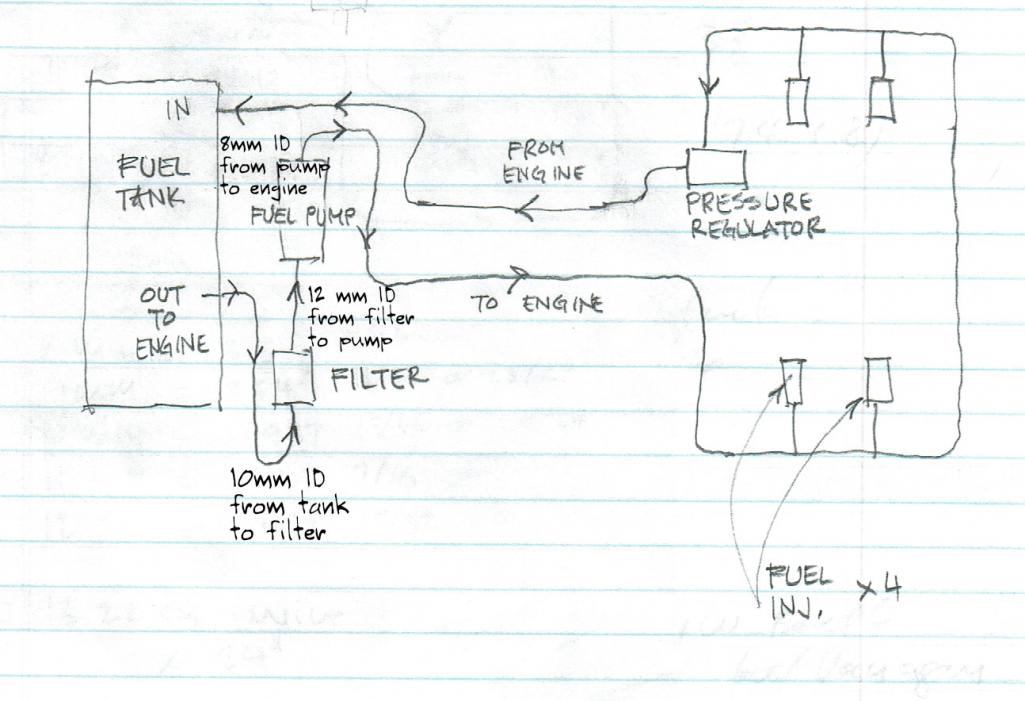 IN
FUEL
TANK
8mm ID
from pump
to engine
FUEL PUMP
FROM
ENGINE
PRESSURE
REGULATOR
OUT
TO
ENGINE
12 mm ID
from filter
to pump
TO ENGINE
FILTER
10mm ID
from tank
to filter
FUEL
INJ.
x4